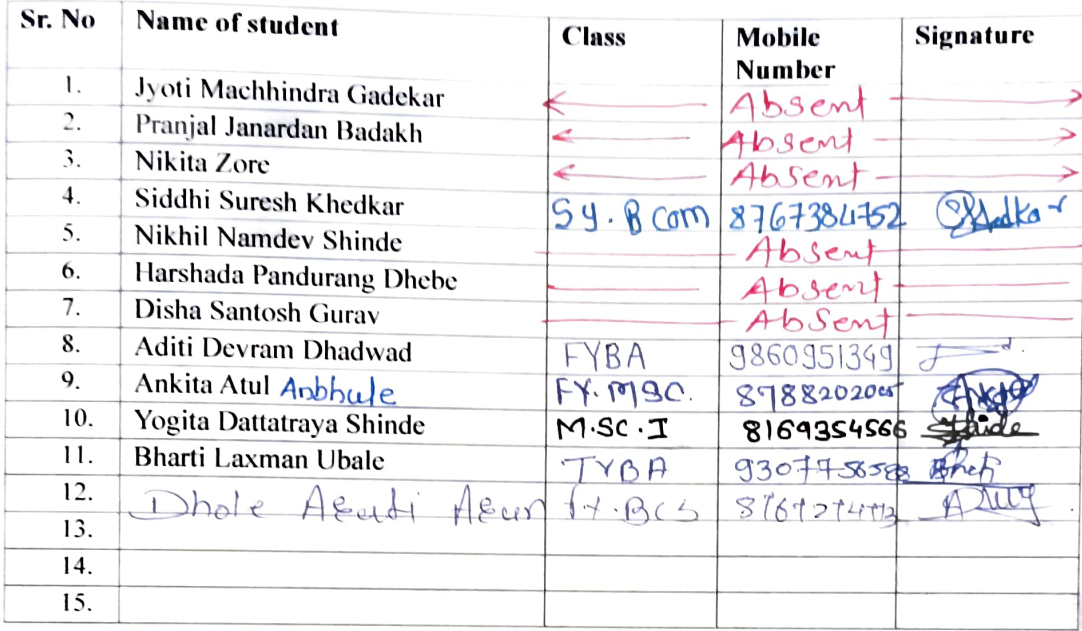 Sr. No Name of student Class Mobile Number Signature
1. Jyoti Machhindra Gadekar Absent
2. Pranjal Janardan Badakh Absent
3. Nikita Zore Absent
4. Siddhi Suresh Khedkar Sy. B com 8767384752
5. Nikhil Namdev Shinde Absent
6. Harshada Pandurang Dhebe Absent
7. Disha Santosh Gurav Absent
8. Aditi Devram Dhadwad FYBA 9860951349
9. Ankita Atul Anbhule FY. MSC.
10. Yogita Dattatraya Shinde M.SC.I 8169354566
11. Bharti Laxman Ubale TYBA
12. Dhole
13.
14.
15.